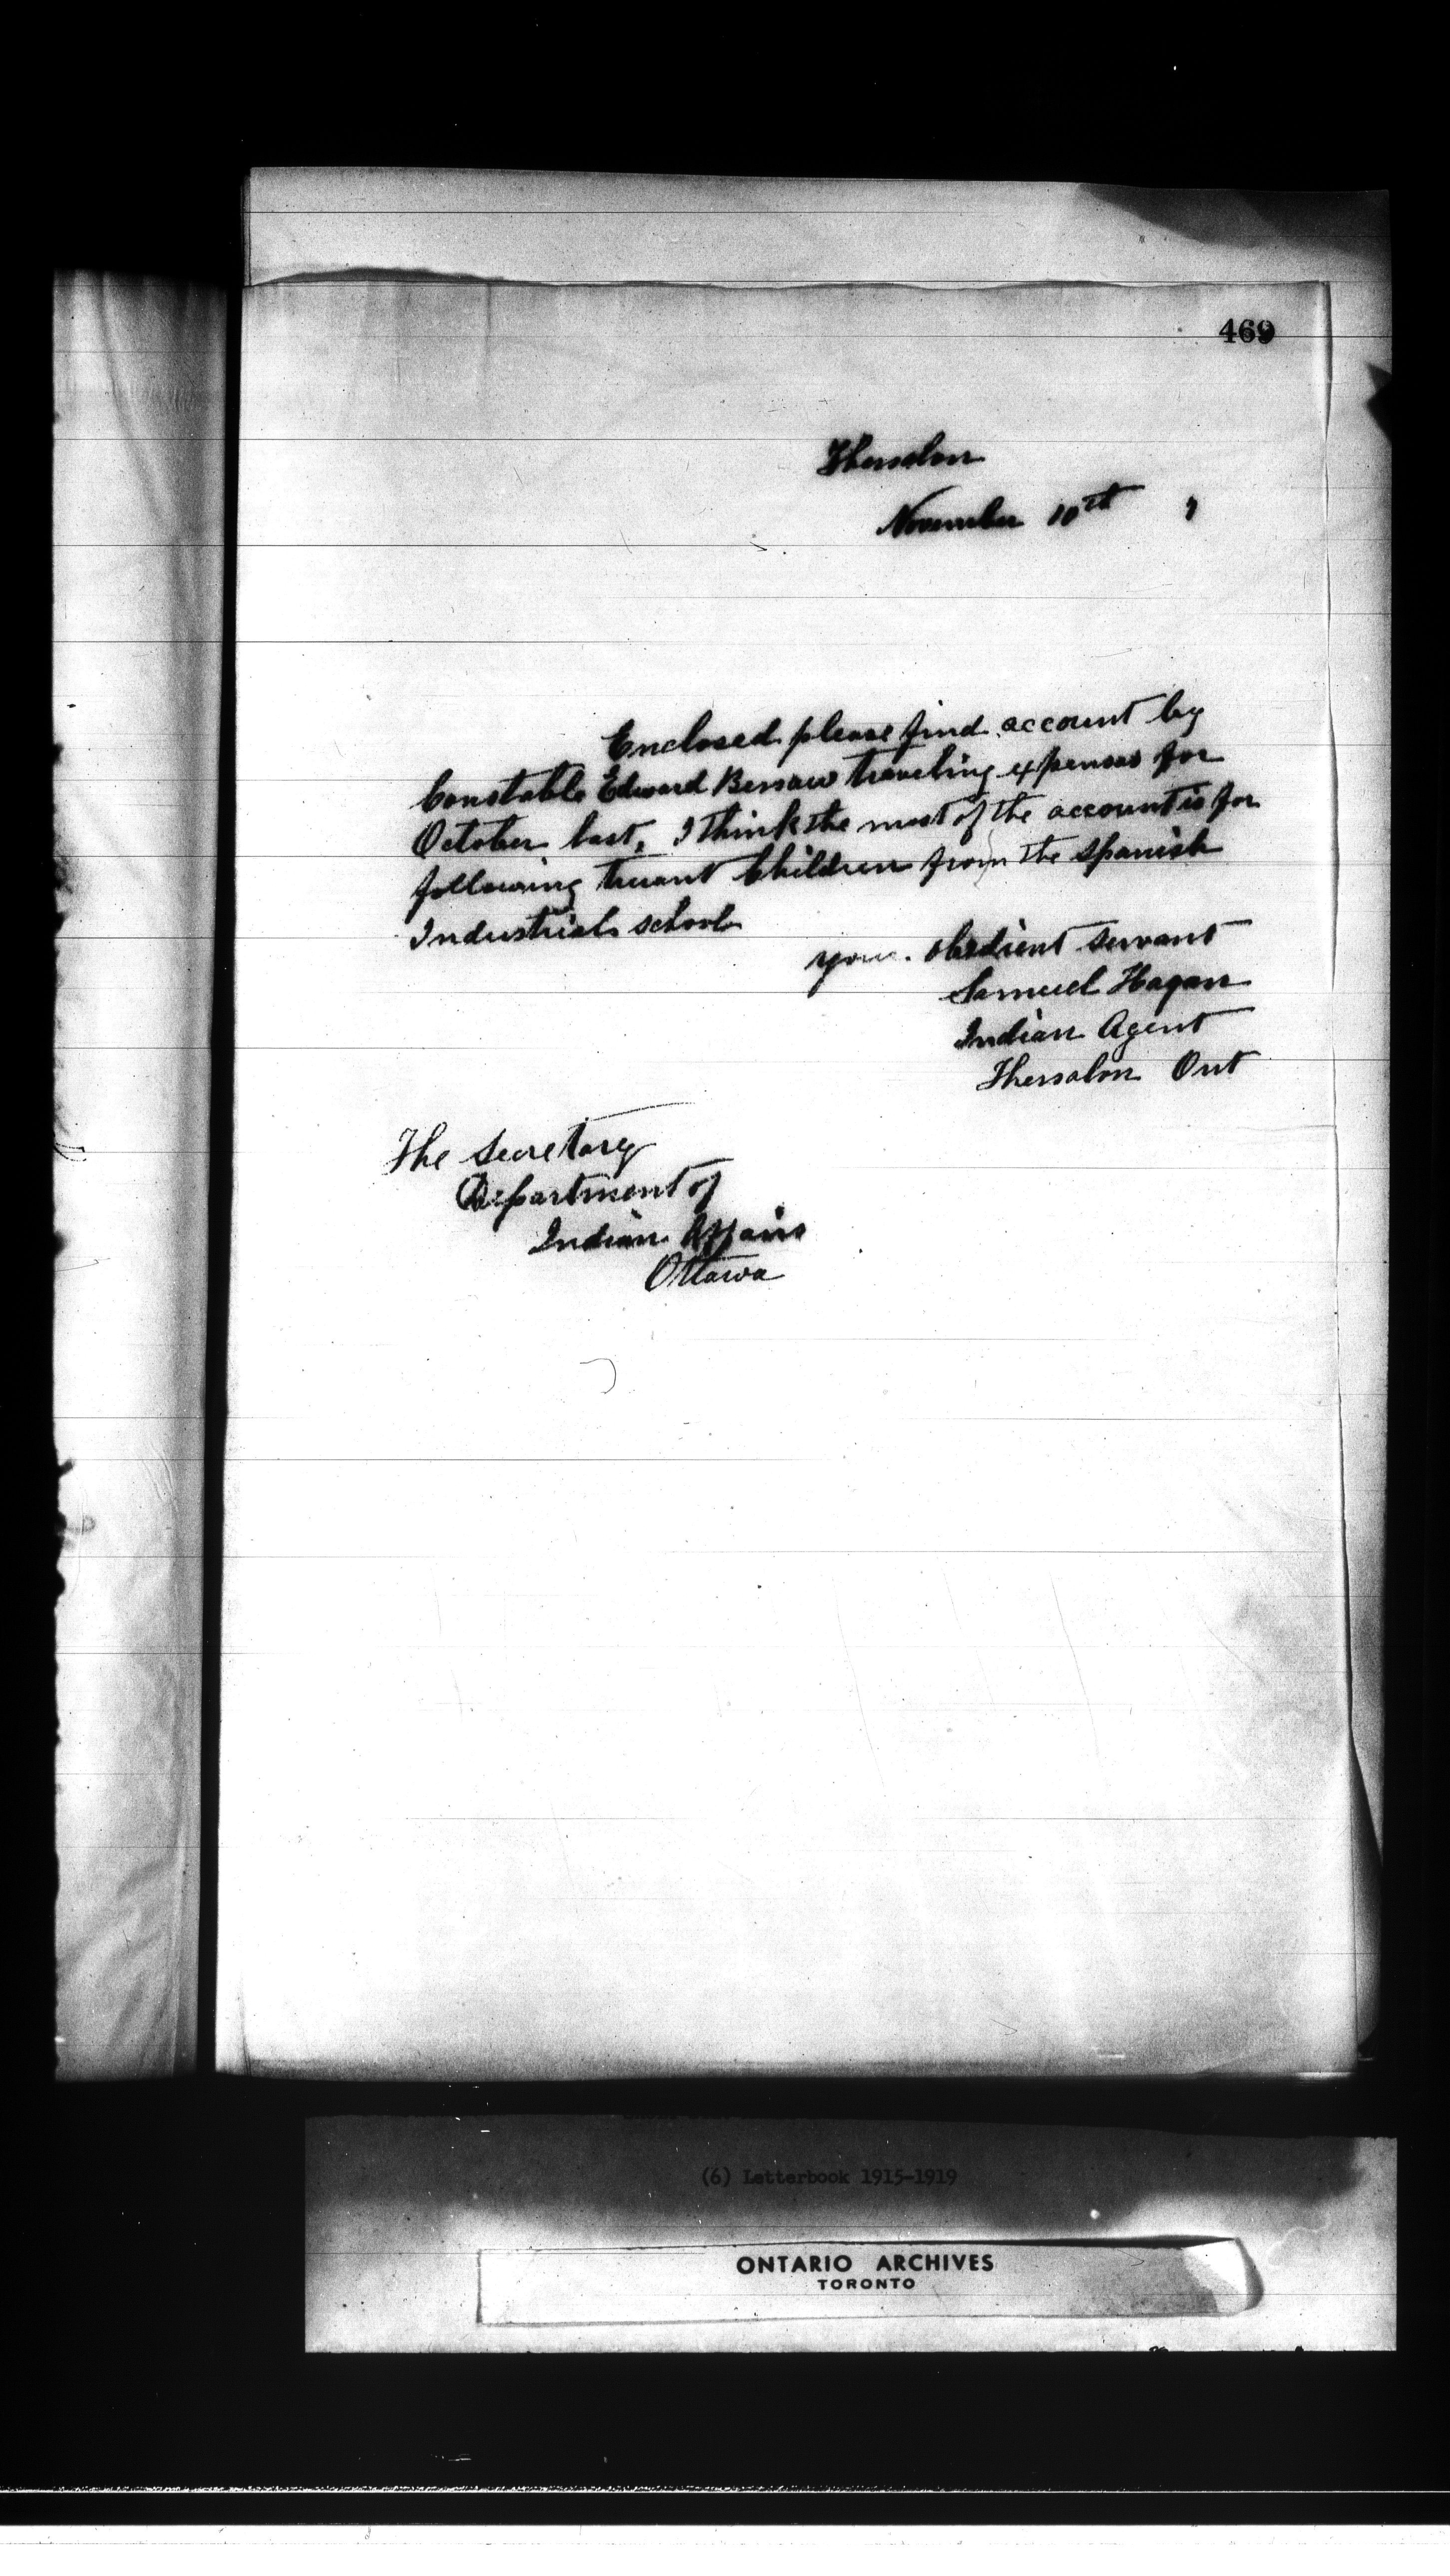 469
Thessalon
November 10th 7
Enclosed please find account by
Constable Edward Bessaw traveling expenses for
October last, I think the most of the account is for
following truant Children from the Spanish
Industrial school
your obedient servant
Samuel Hagan
Indian Agent
Thessalon Ont
The Secretary
Department of
Indian Affairs
Ottawa
(6) Letterbook 1915-1919
ONTARIO ARCHIVES
TORONTO